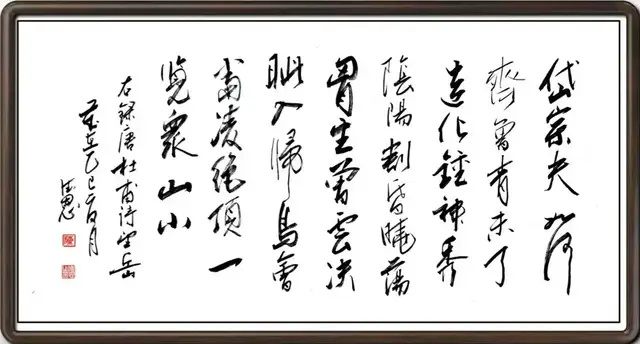 岱宗夫如何
齊魯青未了
造化鍾神秀
陰陽割昏曉蕩
胷生曾雲决
眦入歸鳥會
當凌絕頂一
覽衆山小
右錄唐杜甫詩望岳
歲在乙巳百月